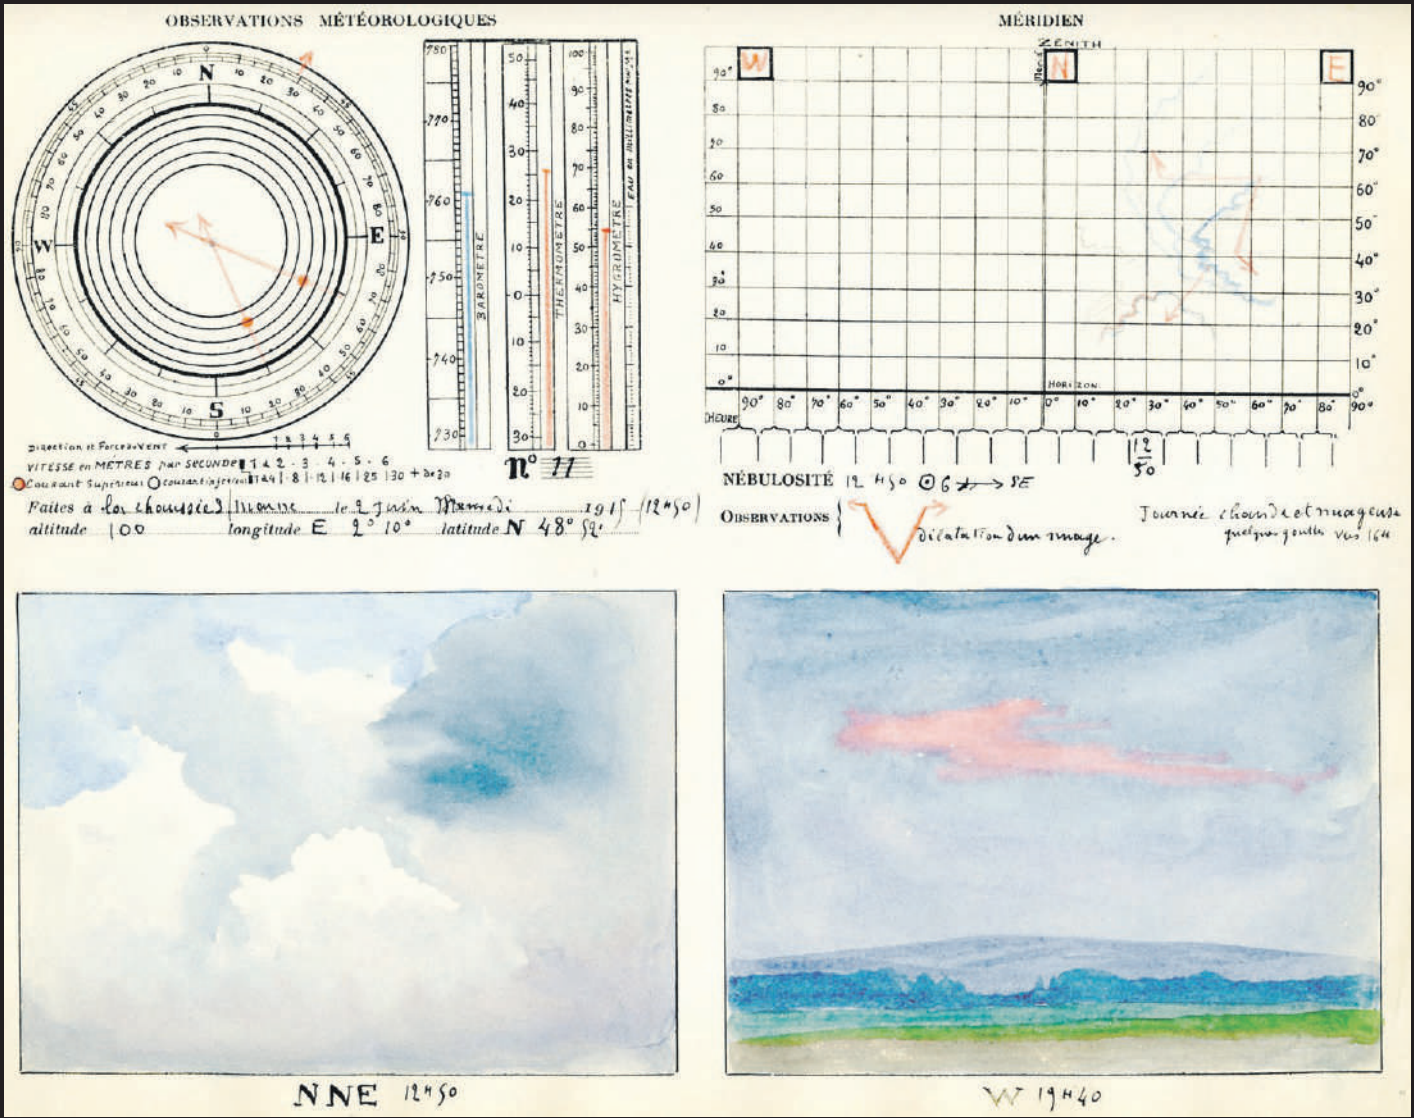 OBSERVATIONS MÉTÉOROLOGIQUES
N
E
S
W
780
770
760
750
740
730
BAROMÈTRE
50
40
30
20
10
0
10
20
30
THERMOMÈTRE
100
90
80
70
60
50
40
30
20
10
0
HYGROMÈTRE
Direction et Force du VENT
1 2 3 4 5 6
VITESSE en MÈTRES par SECONDE 1 à 2 - 3 - 4 - 5 - 6
Courant Supérieur
n° 11
Faites à la chaussée / marne le 2 Juin Mercredi 1915 (12H50)
altitude 100 longitude E 2° 10' latitude N 48° 52'
MÉRIDIEN
ZENITH
W N E
90°
80
70
60
50
40
30
20
10
0°
90°
80°
70°
60°
50°
40°
30°
20°
10°
0°
HORIZON
90° 80° 70° 60° 50° 40° 30° 20° 10° 0° 10° 20° 30° 40° 50° 60° 70° 80° 90°
HEURE
12
50
NÉBULOSITÉ 12H50 6 SE
OBSERVATIONS
dilatation d'un nuage.
Journée chaude et nuageuse
quelques gouttes vers 16H
NNE 12H50
W 19H40